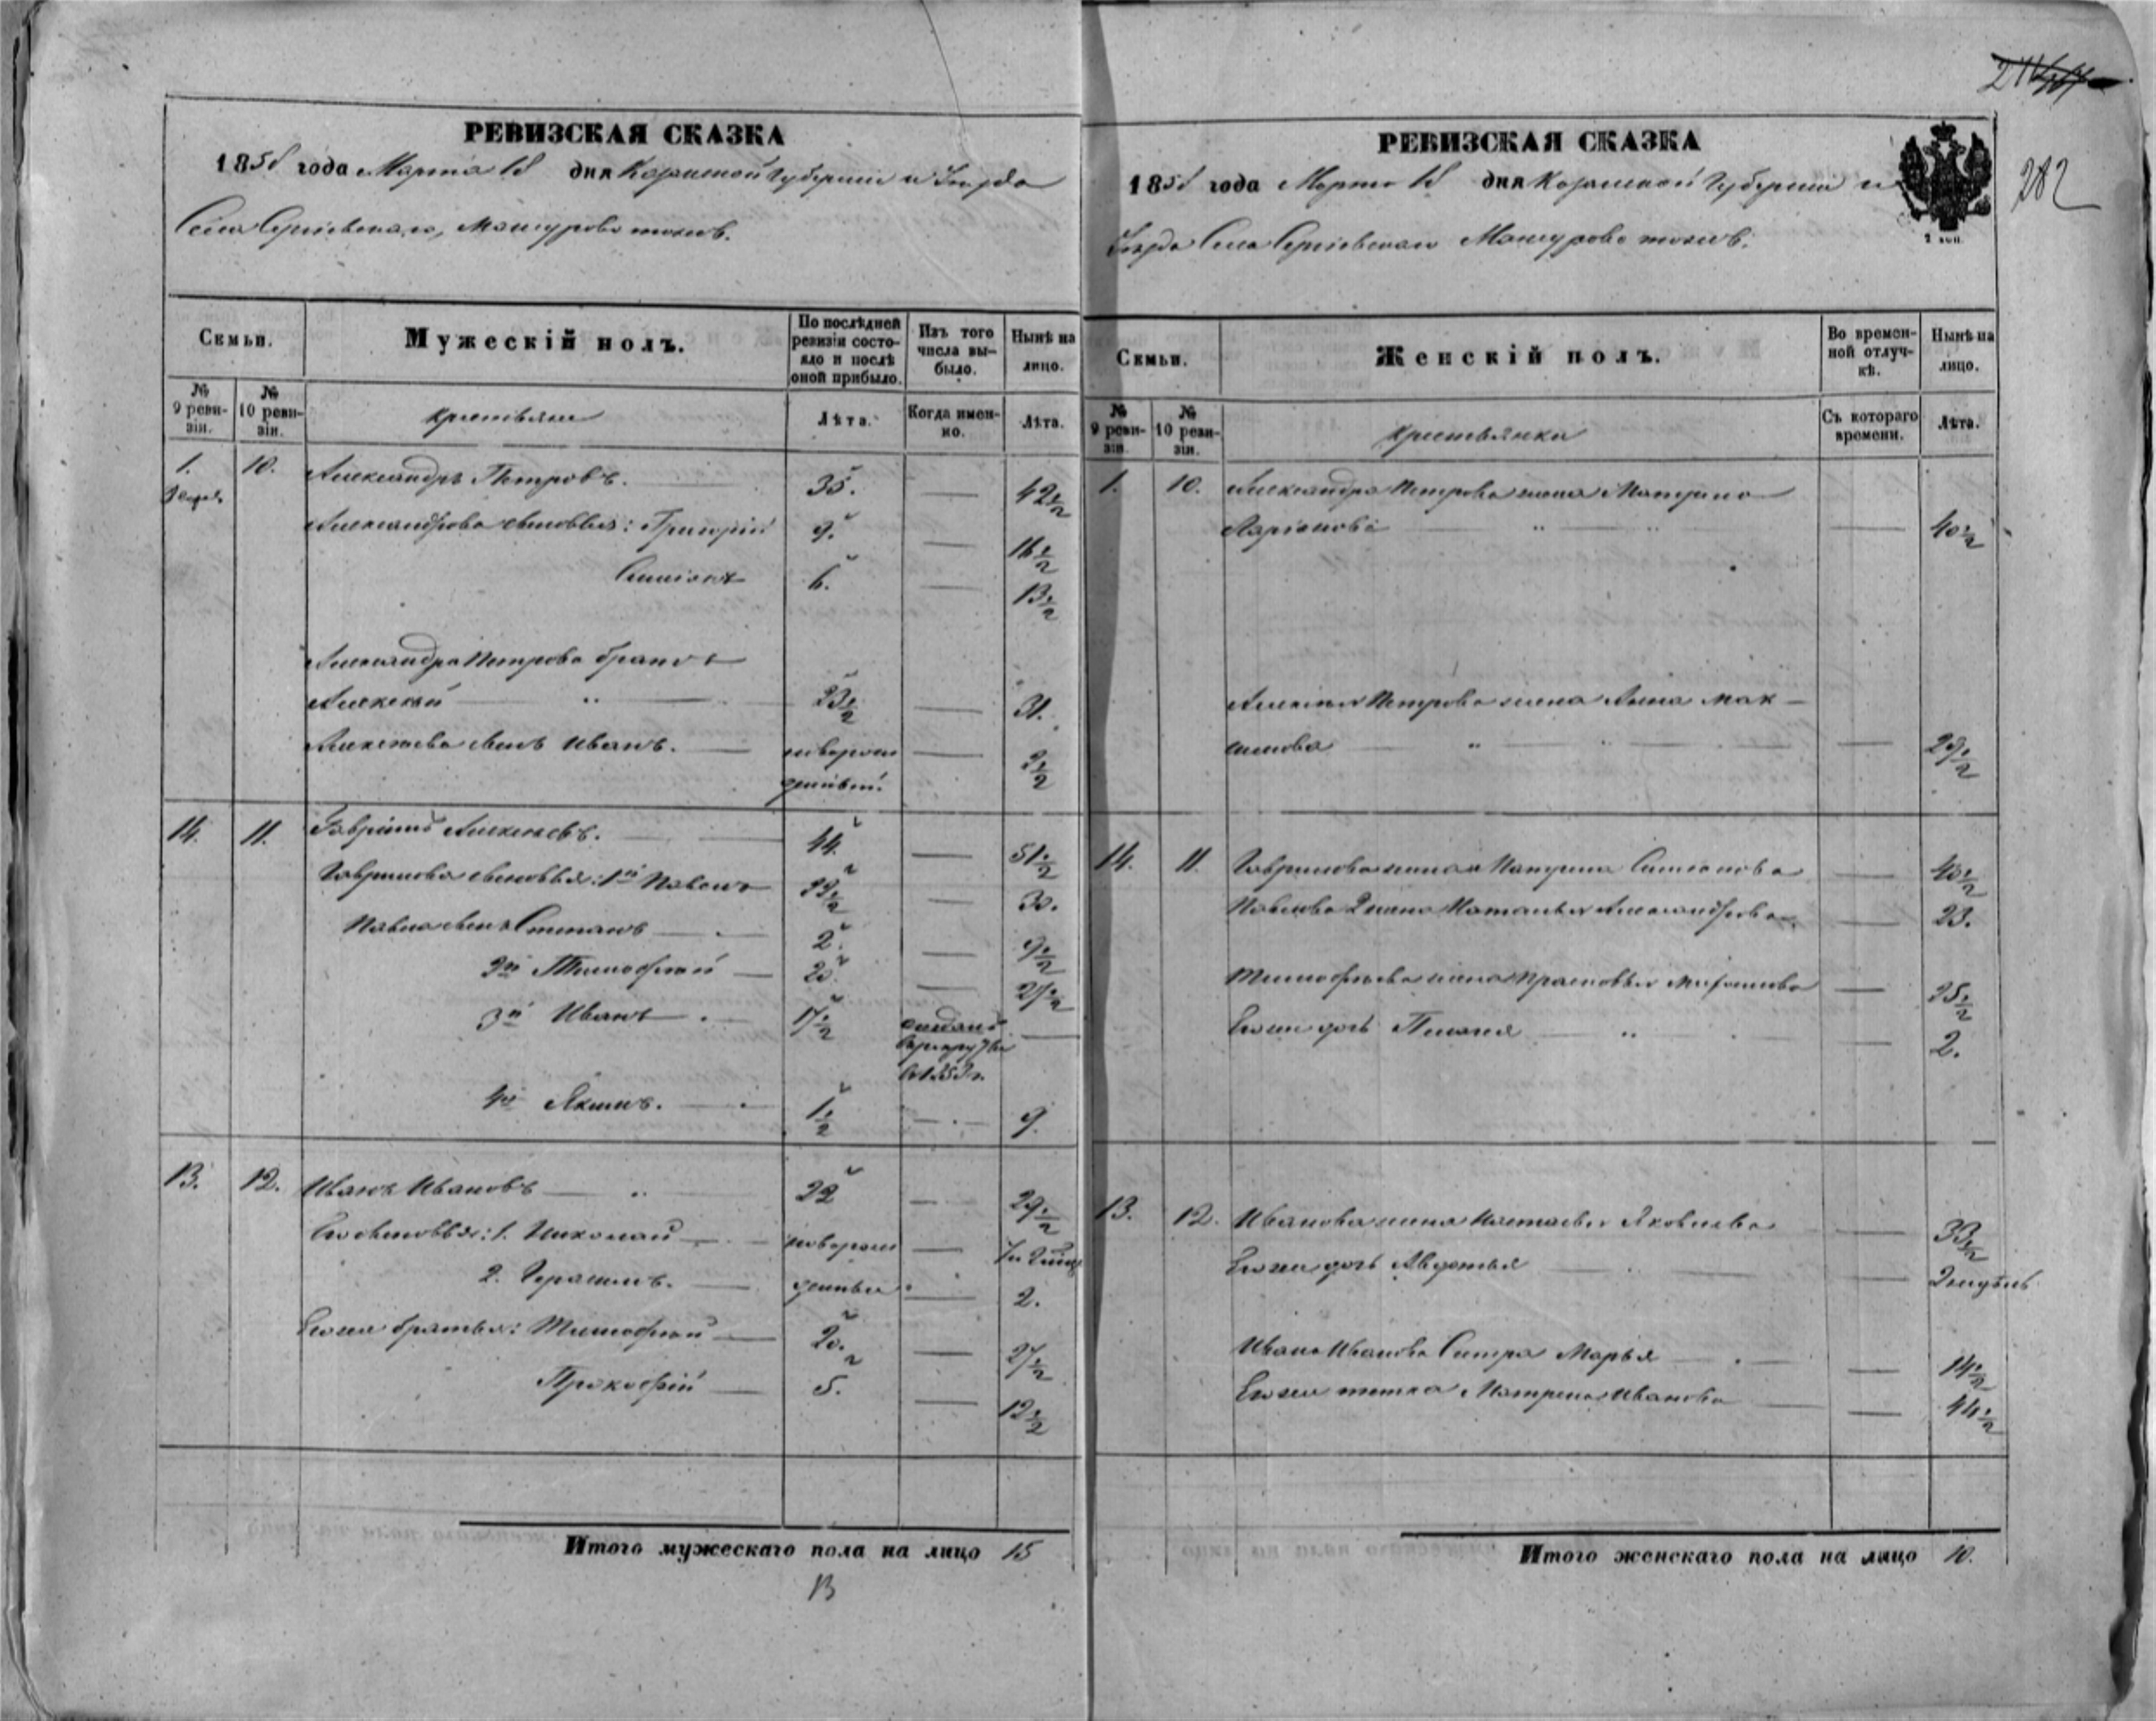 РЕВИЗСКАЯ СКАЗКА
1858 года Марта 18 дня Казанской Губерніи и Уѣзда
Села Сергіевскаго, Мансурово тожъ.
Семьи.
Мужескій полъ.
По послѣдней ревизіи состояло и послѣ оной прибыло.
Изъ того числа выбыло.
Нынѣ на лицо.
№ 9 ревизіи.
№ 10 ревизіи.
Крестьяне
Лѣта.
Когда именно.
Лѣта.
1. 10. Александръ Петровъ. 35. 42½
Александрова сыновья: Григорій 9. 16½
Симіонъ 6. 13½
Александра Петрова братъ
Алексѣй 23½ 31.
Алексѣева сынъ Иванъ. новорож 2½
денный.
14. 11. Гаврілъ Алексѣевъ. 44. 51½
Гаврилова сыновья: 1й Павелъ 22½ 30.
Павла сынъ Степанъ 2. 9½
2й Тимофѣй 20. 27½
3й Иванъ 17½
4й Якимъ. 1½ 9.
13. 12. Иванъ Ивановъ 22 29½
Его сыновья: 1. Николай новорож
2. Герасимъ. денные 2.
Его же братья: Тимофѣй 20. 27½
Прокофій 5. 12½
Итого мужескаго пола на лицо 15
13
РЕВИЗСКАЯ СКАЗКА
1858 года Марта 18 дня Казанской Губерніи и
Уѣзда Села Сергіевскаго Мансурово тожъ.
2 коп.
282
Семьи.
Женскій полъ.
Во временной отлучкѣ.
Нынѣ на лицо.
№ 9 ревизіи.
№ 10 ревизіи.
Крестьянки
Съ котораго времени.
Лѣта.
1. 10. Александра Петрова жена Матрена
Ларіонова 40½
Алексѣя Петрова жена Анна Мак
симова 29½
14. 11. Гаврилова жена Катерина Симіонова 40½
Павлова 2 жена Наталья Александрова 23.
Тимофѣева жена Прасковья 25½
Его же дочь Пелагея 2.
13. 12. Иванова жена Наталья Яковлева 33½
Его же дочь Авдотья 2 недѣль
Ивана Иванова Сестра Марья 14½
Его же тетка Матрена Иванова 44½
Итого женскаго пола на лицо 10.